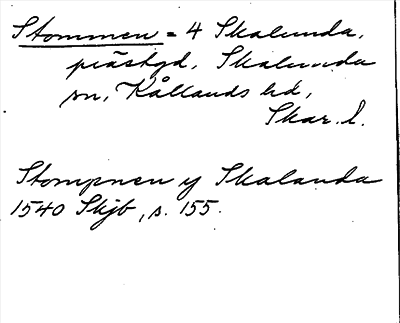 Stommen = 4 Skalunda,
prästgd, Skalunda
sn, Kållands hd,
Skar. l.
Stompnen y Skalanda
1540 Skjb, s. 155.